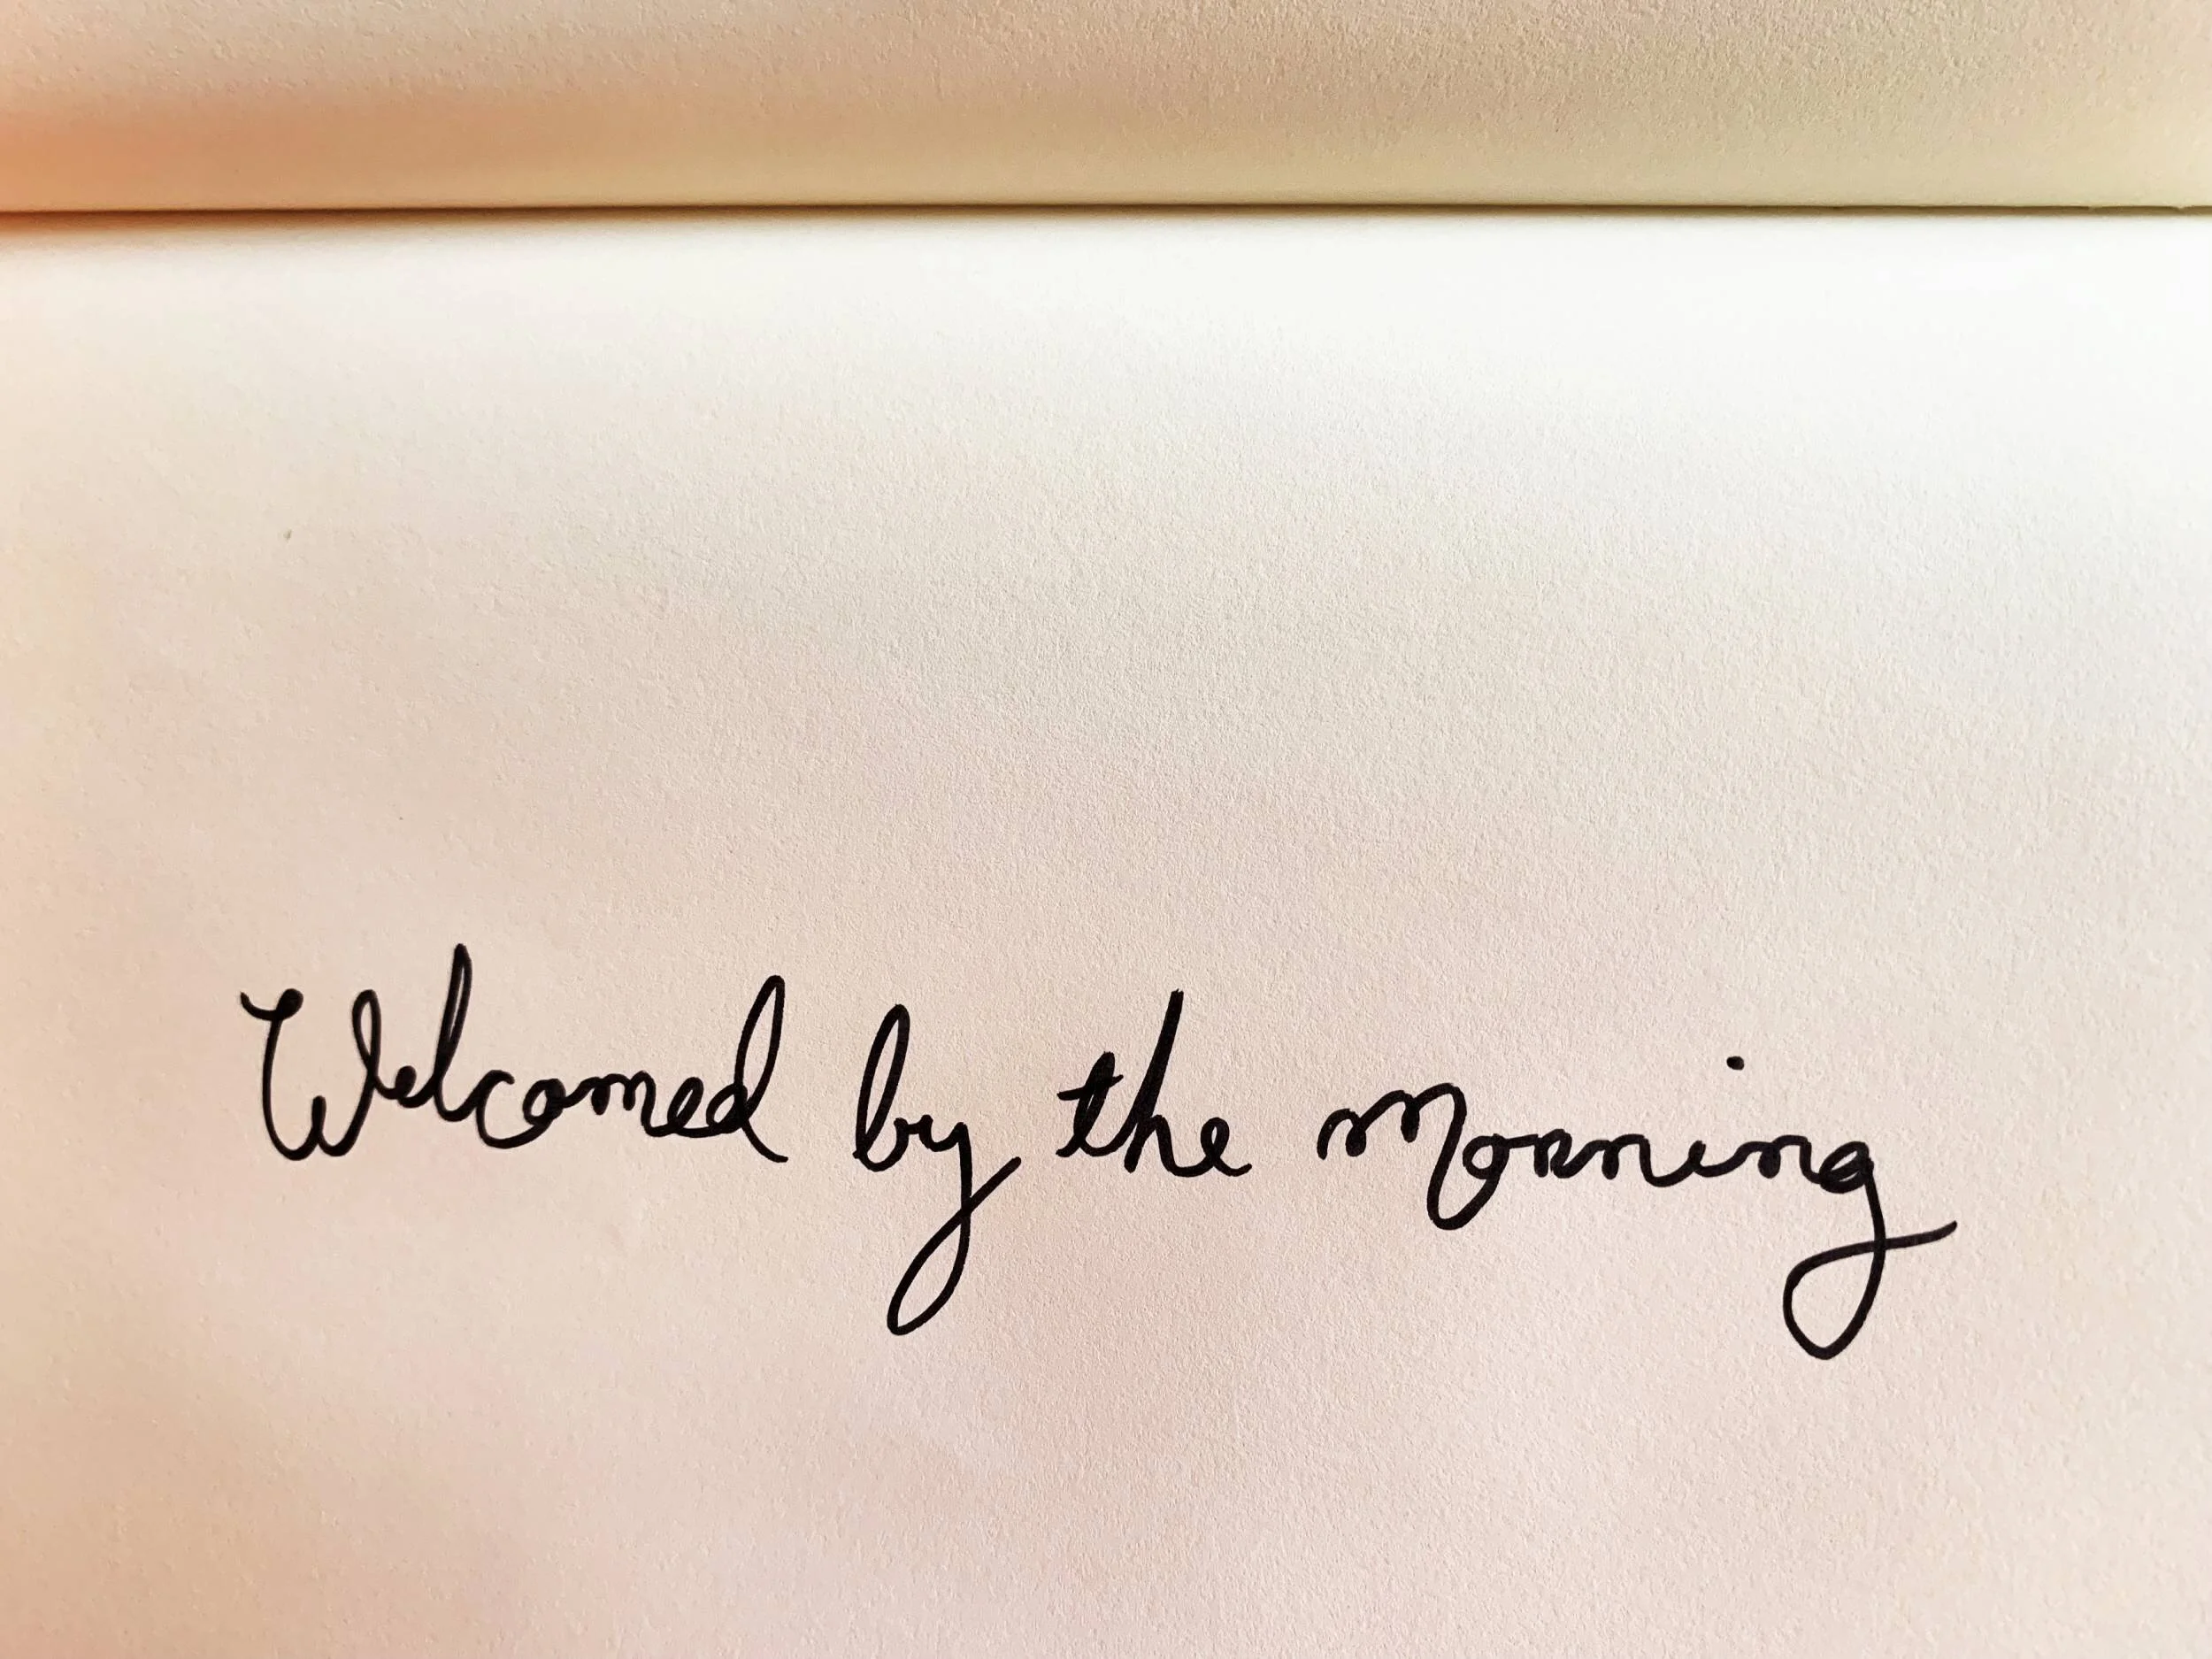 Welcomed by the Morning